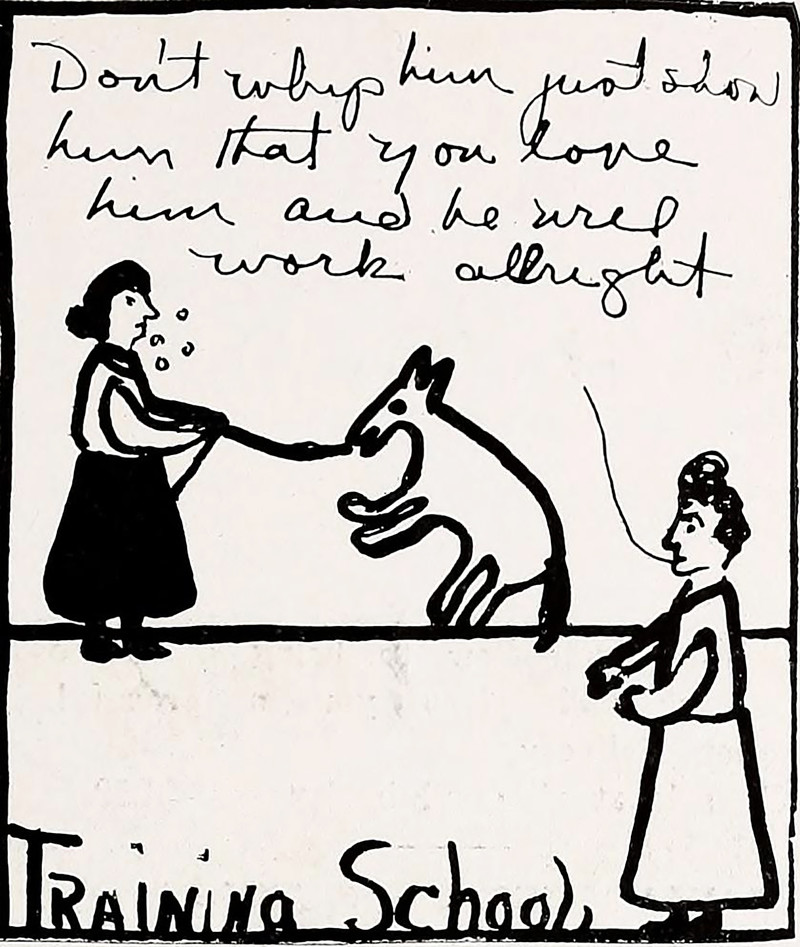 Don't whip him just show
him that you love
him and he will
work allright
TRAINING School